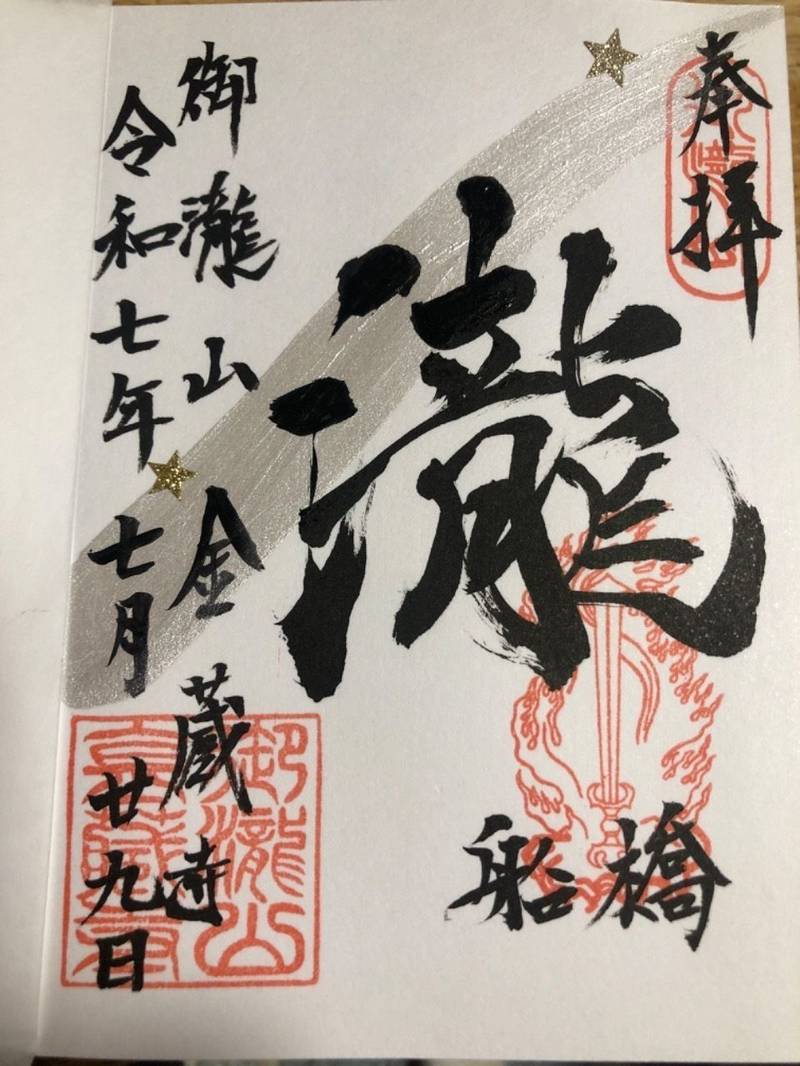 奉拝
瀧
船橋
御瀧山金蔵寺
令和七年七月廿九日
御瀧山